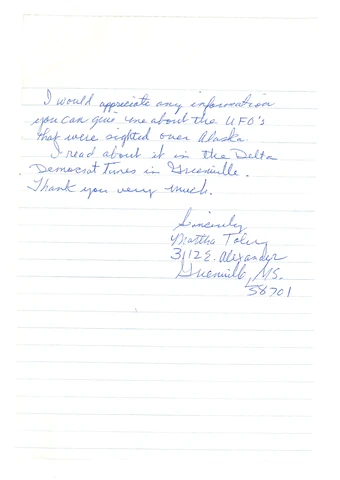 I would appreciate any information
you can give me about the UFO's
that were sighted over Alaska.
I read about it in the Delta
Democrat Times in Greenville.
Thank you very much.
Sincerely
Martha
3112 E. Alexander
Greenville, MS.
38701